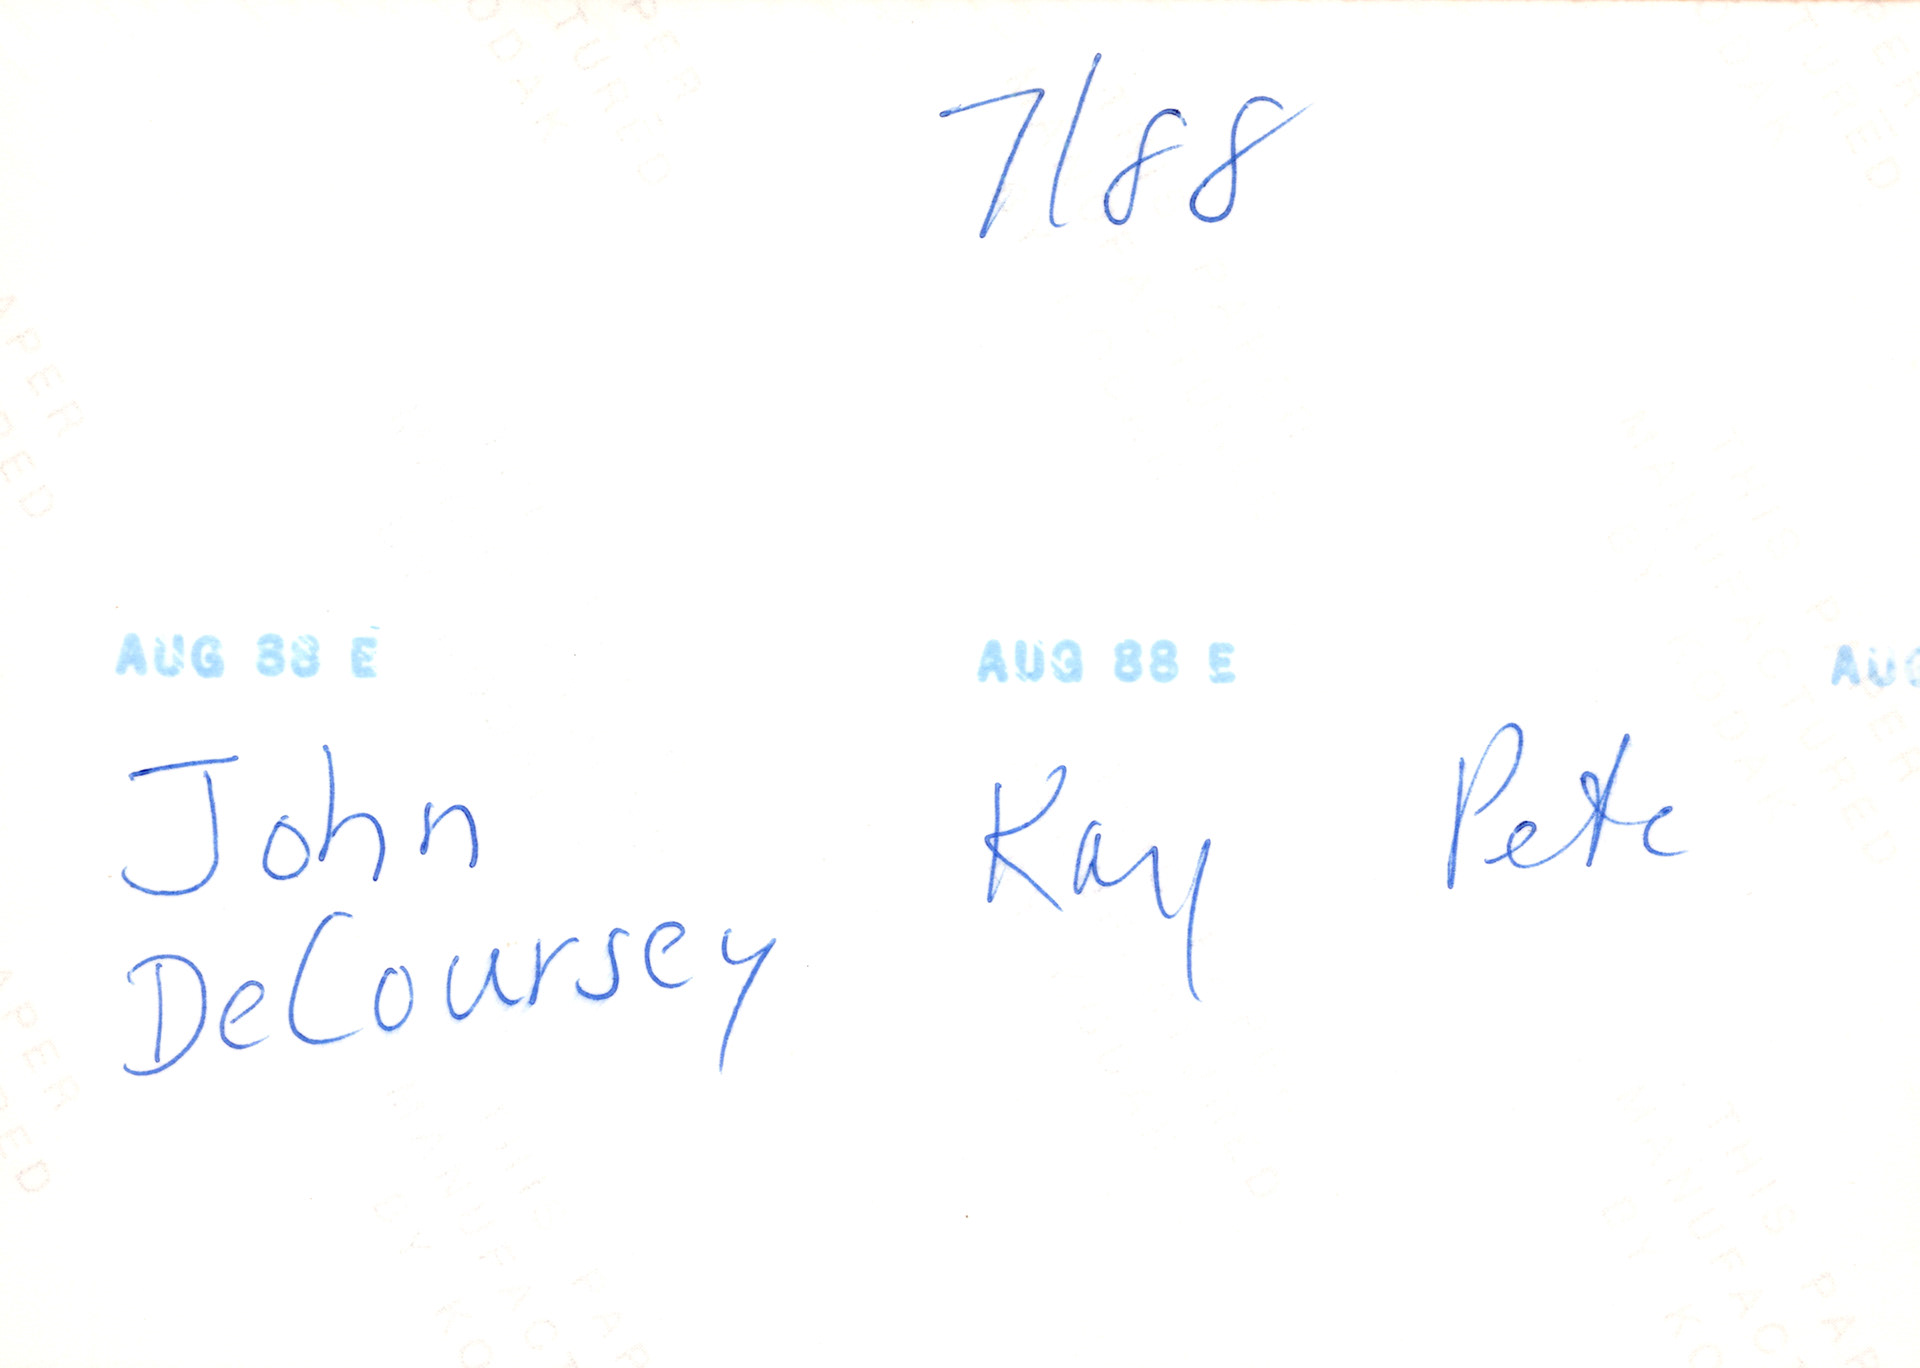 7/88
AUG 88 E AUG 88 E AUG
John Kay Pete
DeCoursey